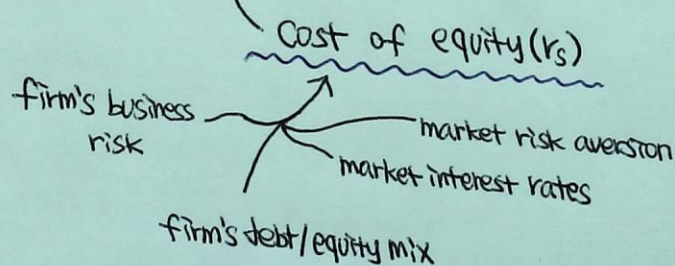 cost of equity (rs)
firm's business
risk
market risk aversion
market interest rates
firm's debt/equity mix